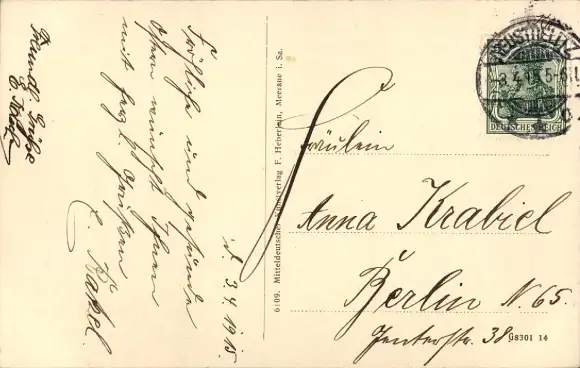 Fröhliche und gesunde
Ostern wünscht Ihnen
mit herzl. Grüßen
E. Rakel.
d. 3.4.1915.
Freundl. Grüße
6109. Mitteldeutscher Kunstverlag F. Heberlein, Meerane i. Sa.
NEUSTRELITZ
3.4.15.5-6N.
DEUTSCHES REICH
Fräulein
Anna Krabiel
Berlin N. 65.
Jenterstr. 38
G8301 14